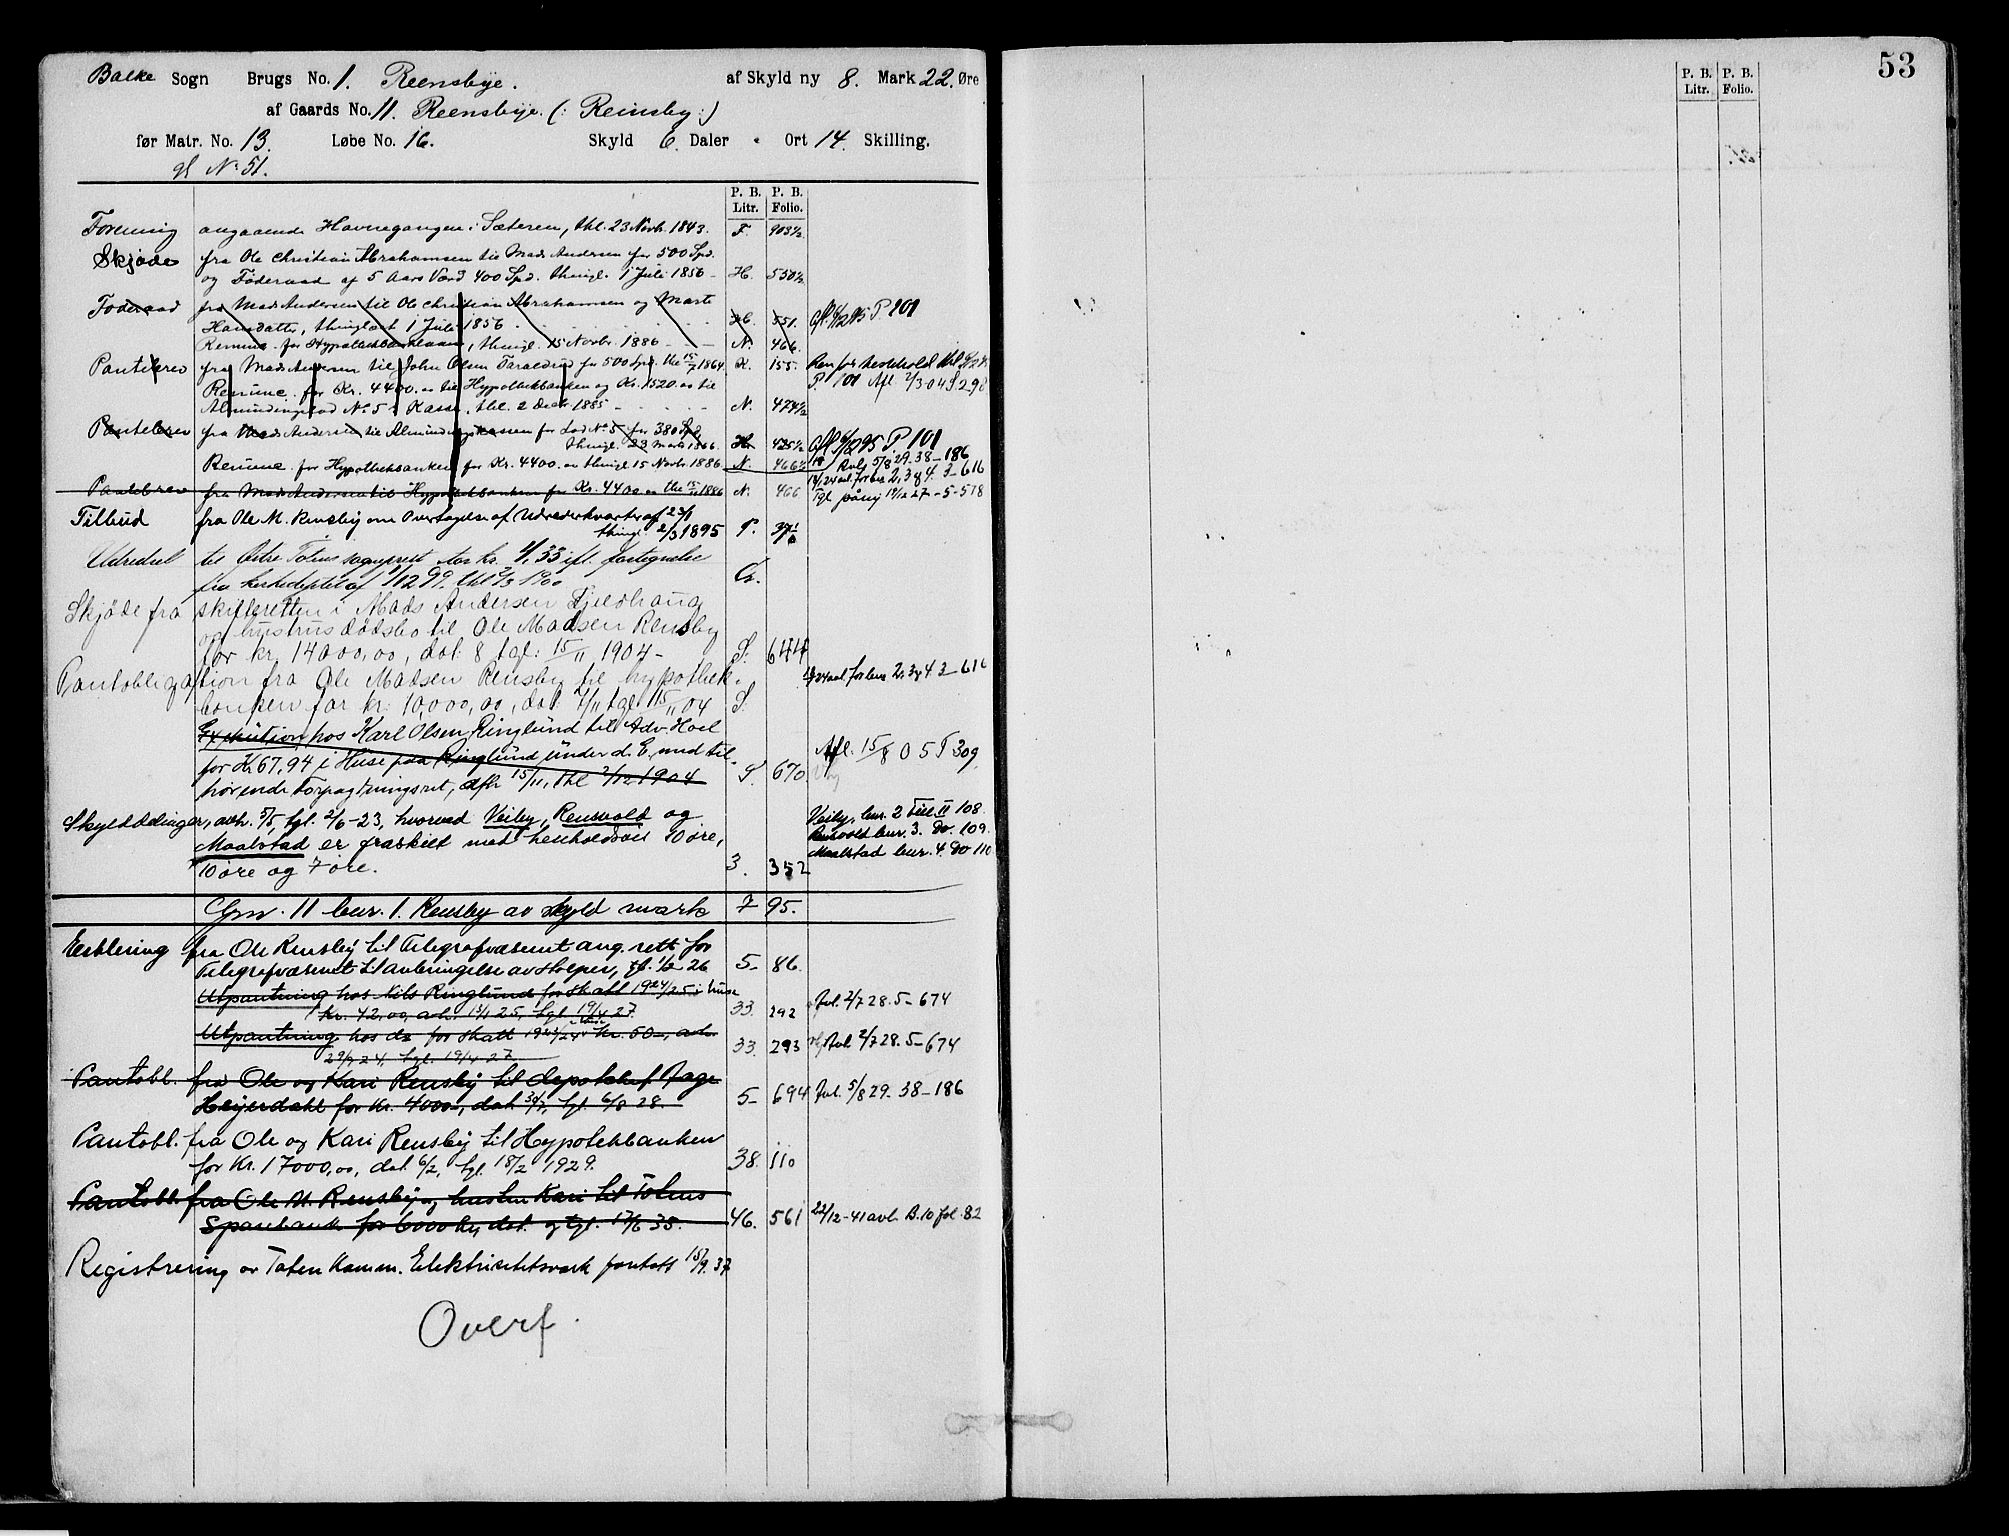 53
Balke Sogn Brugs No. 1. Reensbye. af Skyld ny 8. Mark 22. Øre
af Gaards No. 11. Reensbye. (: Reinsby :)
før Matr. No. 13. Løbe No. 16. Skyld 6 Daler " Ort 14. Skilling.
gl No 51.
P. B. Litr. P. B. Folio.
P. B. Litr. P. B. Folio.
Forening angaaende Havnegangen i Sæteren, thl. 23 Novbr. 1843. F. 903½
Skjøde fra Ole Christian Abrahamsen til Mads Andersen for 500 Spd.
og Føderaad af 5 Aars Værd 400 Spd. thingl. 1 Juli 1856 - H. 550½
Føderaad fra Mads Andersen til Ole Christian Abrahamsen og Marte
Hansdatter, thinglæst 1 Juli 1856 H. 551. Afl. 6/12 95 P. 101
Renunc. for Hypothekbanken, thingl. 15 Novbr. 1886 - N. 466
Pantebrev fra Mads Andersen til John Olsen Taraldrud for 500 Spd. thl 15/7 1864. K. 155.
Renunc. for Kr. 4400.00 til Hypothekbanken og Kr. 1520.00 til
P. 101 Afl. 2/3 04 S 298
Almindingsfod No 5s Kasse, thl. 2 Decbr 1885 N. 474½
Pantebrev fra Mads Andersen til Almindingskassen for Lod No 5 for 380 Spd
thingl. 23 Marts 1866. 425½ Afl 6/12 95 P. 101
Renunc. for Hypothekbanken for Kr. 4400.00 thingl 15 Novbr. 1886 N. 466½
Avl. 5/8 29. 38 - 186
18/1 24 avl. for bnr 2, 3 og 4. 3 - 616
Pantebrev fra Mads Andersen til Hypothekbanken for Kr. 4400.00 thl 15/11 1886 N. 466
Tgl påny 19/12 27 - 5 - 518
Tilbud fra Ole M. Rensby om Overtagelse af Udrederkvarter af 23/1
thingl. 2/3 1895 P.
Udredsel til Østre Totens sogneprest stor kr. 4,33 ifl. fortegnelse
fra kirkedeptet af 1/12 99. thl 2/3 1900 Q.
Skjøde fra skifteretten i Mads Andersen Fjeldhaug
og hustrus dødsbo til Ole Madsen Rensby
for kr. 14000,00, dat: 8 tgl: 15/11 1904 - S. 644
Pantobligation fra Ole Madsen Rensby til hypothek-
banken for kr: 10,000,00, dat: 7/11 tgl. 15/11 04 S.
24 avl for bnr 2, 3 og 4 3 - 616
Exekution hos Karl Olsen Ringlund til Adv Hoel
for Kr 67,94 i Huse paa Ringlund under d. E. med til-
hørende Forpagtningsret, afh 15/11, thl 2/12 1904 S 670
Afl. 15/8 05 T 309
Skylddelinger, avh. 3/5, tgl. 2/6-23, hvorved Veiby, Rensvold og
Maalstad er fraskilt med henholdsvis 10 øre,
10 øre og 7 øre. 3. 352
Veiby, bnr. 2 Till II 108.
Rensvold bnr. 3. Do. 109.
Maalstad bnr. 4. Do 110
Gnr. 11 bnr. 1. Rensby av skyld mark 7 95.
Erklæring fra Ole Rensby til Telegrafvæsenet ang. rett for
Telegrafvæsenet til anbringelse av stolper, tgl. 1/2 26 5- 86.
Utpantning hos Nils Ringlund for skatt 1924/25 i huse
Kr. 42,00, avh. 15/1 25, tgl. 19/4 27. 33. 292 Avl. 2/7 28. 5 - 674
Utpantning hos ds for skatt 1923/24 Kr. 50-, avh
29/2 24, tgl. 19/4 27. 33. 293 Avl 2/7 28. 5 - 674
Pantobl. fra Ole og Kari Rensby til depotchef Aage
Heyerdahl for Kr. 4000-, dat 30/7, tgl. 6/8 28. 5- 694 Avl. 5/8 29. 38 - 186
Pantobl. fra Ole og Kari Rensby til Hypotekbanken
for Kr. 17000,00, dat. 6/2, tgl. 18/2 1929. 38. 110
Pantobl. fra Ole M. Rensby og hustru Kari til Totens
Sparebank for 6000 kr, dat. og tgl. 17/6 35. 46. 561 22/12-41 avl. B. 10 fol. 82
Registrering av Toten Komm. Elektrisitetsverk foretatt 15/9. 37
Overf.